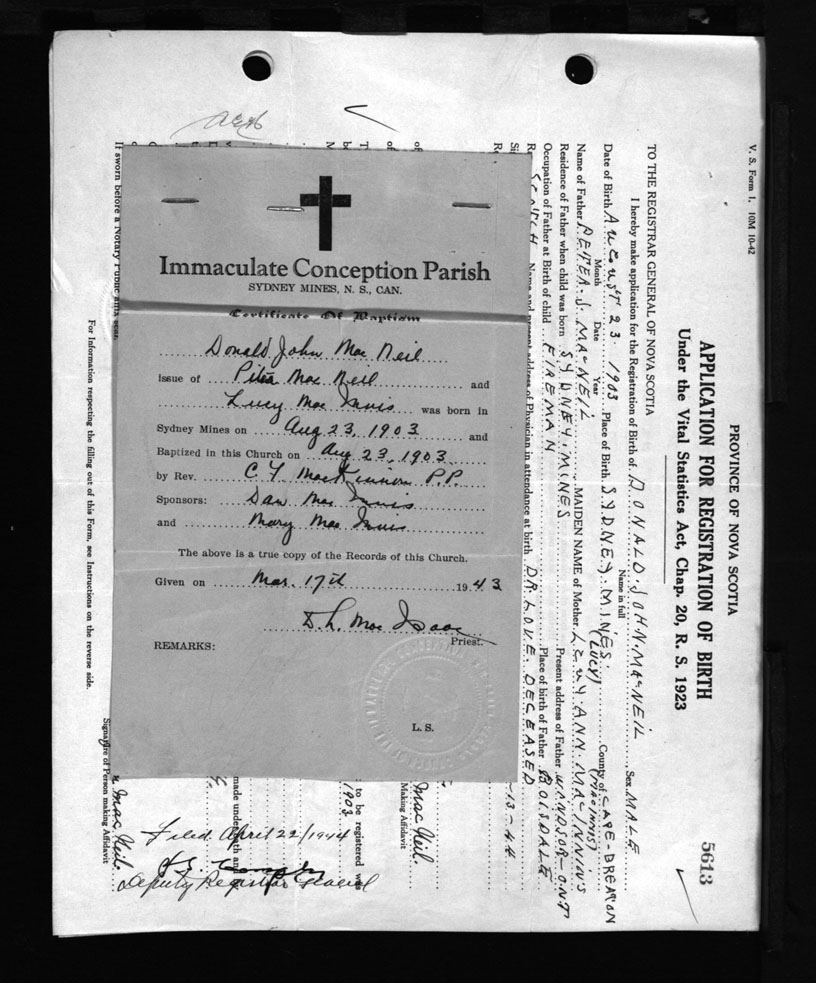 V. S. Form 1. 10M 10-42
PROVINCE OF NOVA SCOTIA
APPLICATION FOR REGISTRATION OF BIRTH
Under the Vital Statistics Act, Chap. 20, R. S. 1923
5613
TO THE REGISTRAR GENERAL OF NOVA SCOTIA
I hereby make application for the Registration of Birth of DONALD JOHN MacNEIL Sex MALE
Name in full
Date of Birth AUGUST 23 1903 Place of Birth SYDNEY MINES County of CAPE-BRETON
Month Date Year
(LUCY) (MACINNIS)
Name of Father PETER J. MacNEIL MAIDEN NAME of Mother LEWY ANN MACINNINS
Residence of Father when child was born SYDNEY MINES Present address of Father WINDSOR-ONT
Occupation of Father at Birth of child FIREMAN Place of birth of Father BOISDALE
Name and present address of Physician in attendance at birth DR. LOVE. DECEASED
SCOTCH
-13-44
MacNeil.
Making Affidavit
to be registered was
1903
made under oath and
MacNeil.
Signature of Person making Affidavit
If sworn before a Notary Public affix seal.
For Information respecting the filling out of this Form, see Instructions on the reverse side.
Filed April 22/1944
Deputy Registrar General
Immaculate Conception Parish
SYDNEY MINES, N. S., CAN.
Certificate Of Baptism
Donald John MacNeil
issue of Peter MacNeil and
Lucy MacInnis was born in
Sydney Mines on Aug 23, 1903 and
Baptized in this Church on Aug 23, 1903
by Rev. C. F. MacKinnon P.P.
Sponsors: Dan MacInnis
and Mary MacInnis
The above is a true copy of the Records of this Church.
Given on Mar. 17th 1943
D. L. MacIsaac
Priest.
REMARKS:
L. S.